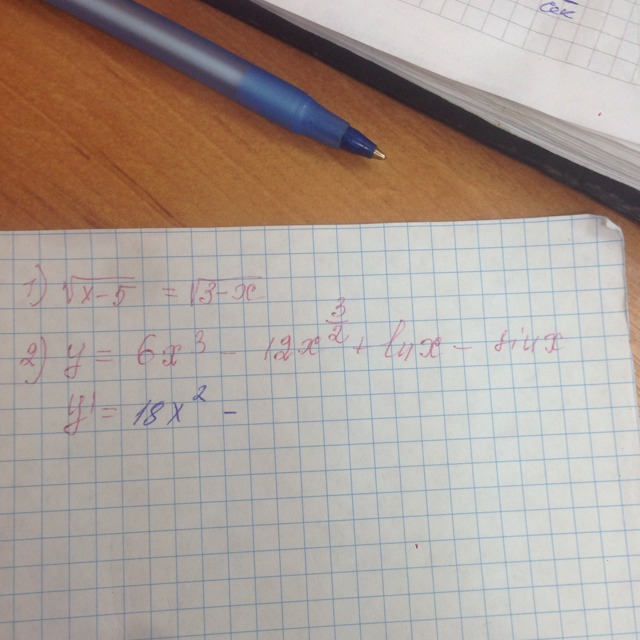 1) √x-5 = √3-x
2) y = 6x³ - 12x^(3/2) + lnx - sinx
y' = 18x² -